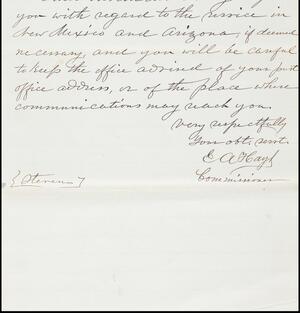 you with regard to the service in
New Mexico and Arizona, if deemed
necessary, and you will be careful
to keep the office advised of your post
office address, or of the place where
communications may reach you.
Very respectfully
Your obt. servt.
E A Hayt
Commissioner
{Stevens}